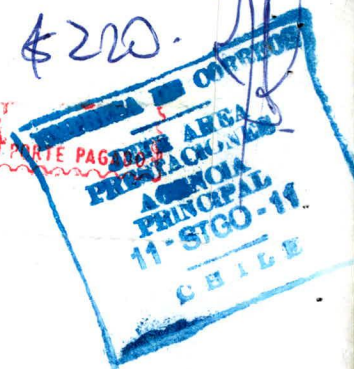 $220.
PORTE PAGADO
EMPRESA DE CORREOS
AREA
PRESTACIONES
AGENCIA
PRINCIPAL
11-STGO-11
CHILE